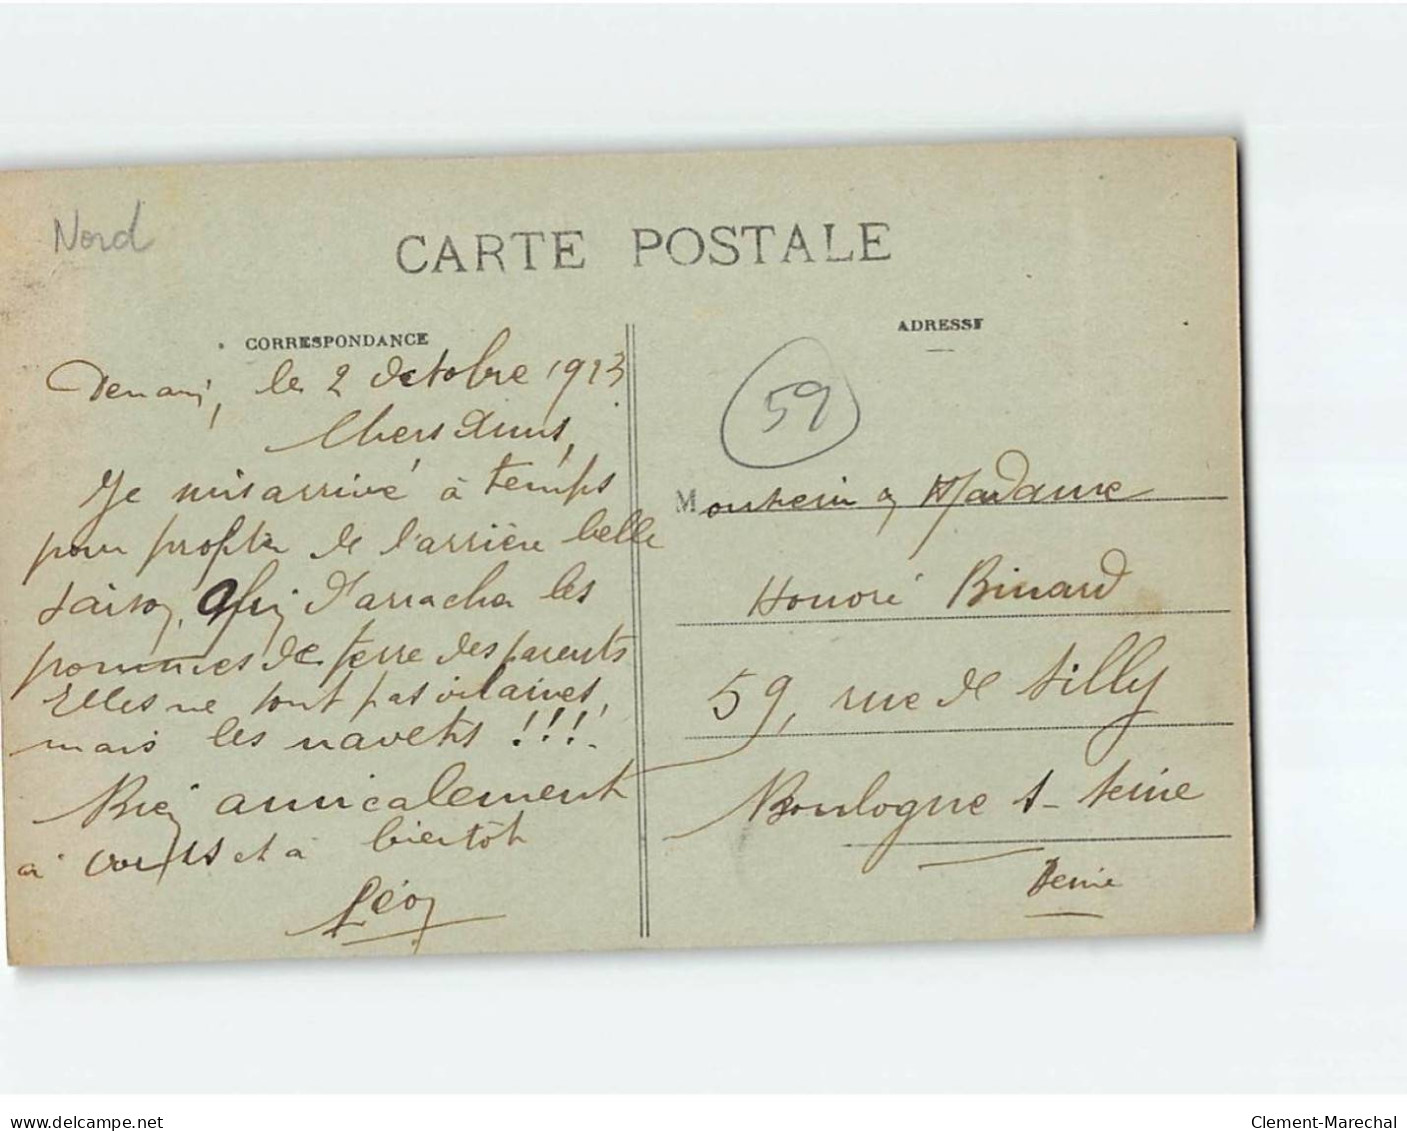 Nord
CARTE POSTALE
CORRESPONDANCE
ADRESSE
Denain, le 2 Octobre 1913
Chers Amis,
Je suis arrivé à temps
pour profiter de l'arrière belle
saison, afin d'arracher les
pommes de terre des parents
Elles ne sont pas vilaines,
mais les navets !!!.
Bien amicalement
à vous et à bientôt
Léon
59
Monsieur & Madame
Honoré Binard
59, rue de Silly
Boulogne s- Seine
Seine
www.delcampe.net
Clement-Marechal